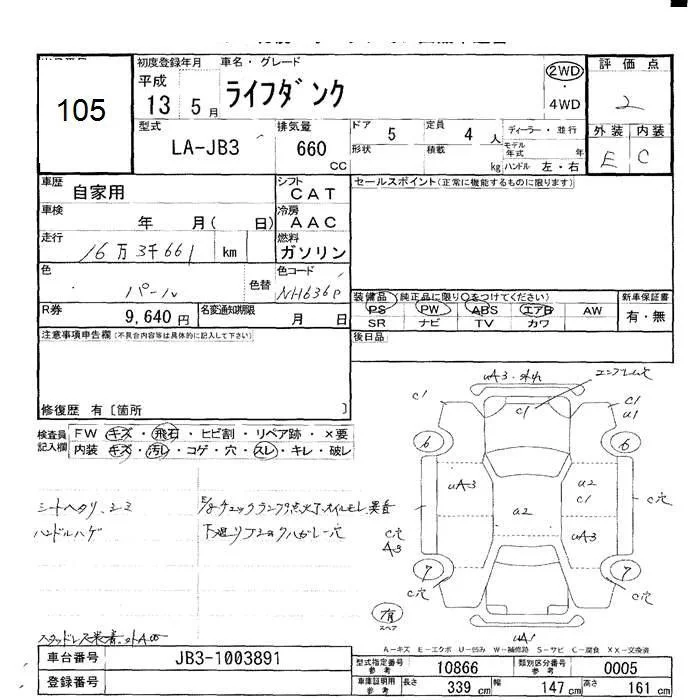 初度登録年月 車名・グレード 評価点
105 平成 13 5月 ライフダンク 2WD・4WD 2
型式 LA-JB3 排気量 660 CC ドア 5 定員 4 人 ディーラー・並行 外装 内装
形状 積載 kg モデル年式 年 ハンドル 左・右 E C
車歴 自家用 シフト CAT セールスポイント(正常に機能するものに限ります)
車検 年 月( 日) 冷房 AAC
走行 16万3千661 km 燃料 ガソリン
色 パール 色替 色コード NH636P
R券 9,640円 名変通知期限 月 日
装備品(純正品に限り○をつけてください) 新車保証書
PS PW ABS エアB AW 有・無
SR ナビ TV カワ
後日品
注意事項申告欄(不具合内容等は具体的に記入して下さい)
修復歴 有〔箇所 〕
検査員記入欄 FW キズ・飛石・ヒビ割・リペア跡・×要
内装 キズ・汚レ・コゲ・穴・スレ・キレ・破レ
シートヘタリ、シミ
ハンドルハゲ
E/gチェックランプ点火下オイルモレ異音
下廻り ハガレ穴
UA3
C1
C1
C1
U1
6
6
UA3
U2
C1
A2
C穴
C穴
A3
UA3
7
7
C穴
C穴
有
スペア
UA1
A-キズ E-エクボ U-凹み W-補修跡 S-サビ C-腐食 XX-交換済
車台番号 JB3-1003891
登録番号
型式指定番号 参考 10866 類別区分番号 参考 0005
車庫証明用 参考 長さ 339 cm 幅 147 cm 高さ 161 cm